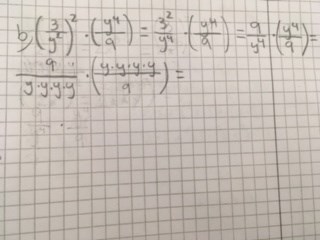 b) (3/y²)² · (y⁴/9) = 3²/y⁴ · (y⁴/9) = 9/y⁴ · (y⁴/9) =
9/(y·y·y·y) · (y·y·y·y/9) =